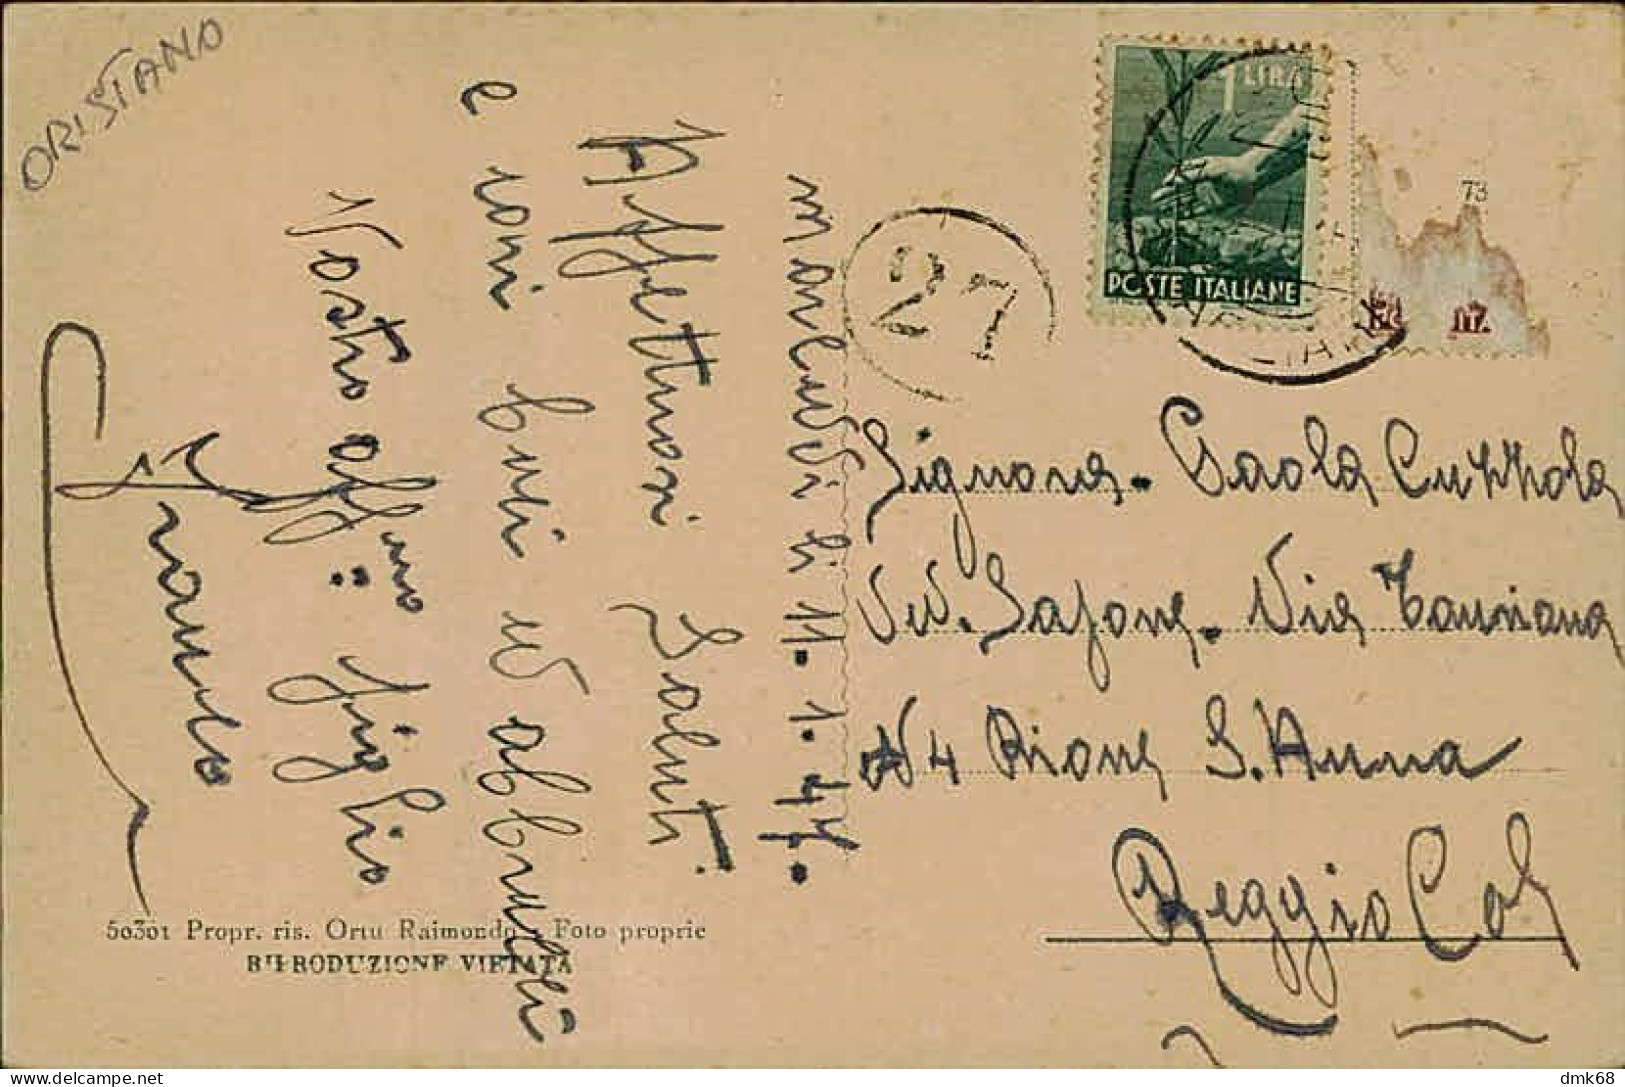 ORISTANO
Marrubiu li 11.1.47.
Affettuosi Saluti
e cari baci vi abbraccio
Vostro aff.mo figlio
Franco
1 LIRA
POSTE ITALIANE
27
73
Signora. Paola Cuzzola
Via Tauriana
N 4 Rione S. Anna
Reggio Cal
50301 Propr. ris. Ortu Raimondo - Foto proprie
RIPRODUZIONE VIETATA
dmk68